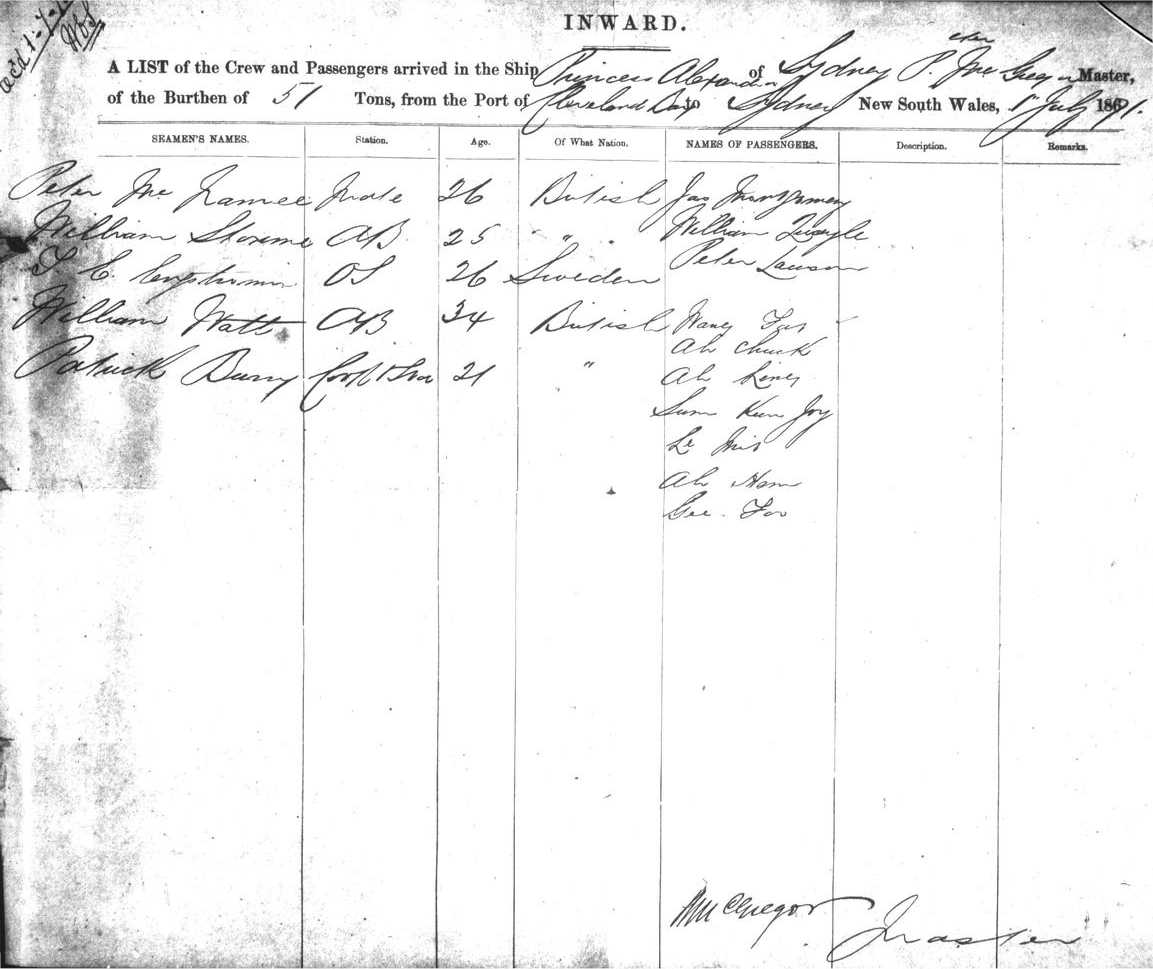 rec'd 1-7-7
INWARD.
A LIST of the Crew and Passengers arrived in the Ship Princess Alexandria of Sydney P. Mc Gregor Master,
of the Burthen of 51 Tons, from the Port of Cleveland Bay to Sydney New South Wales, 1st July 1871.
SEAMEN'S NAMES. Station. Age. Of What Nation. NAMES OF PASSENGERS. Description. Remarks.
Peter Mc Namee Mate 26 British Jas Montgomery
William 25 " William Quayle
OS 26 Sweden Peter Lawson
William Watt AB 34 British Wang Foo
Ah Chuck
Patrick Cook & 21 " Ah King
Sum Kum Joy
Le
Ah Ham
Gee Foo
McGregor Master